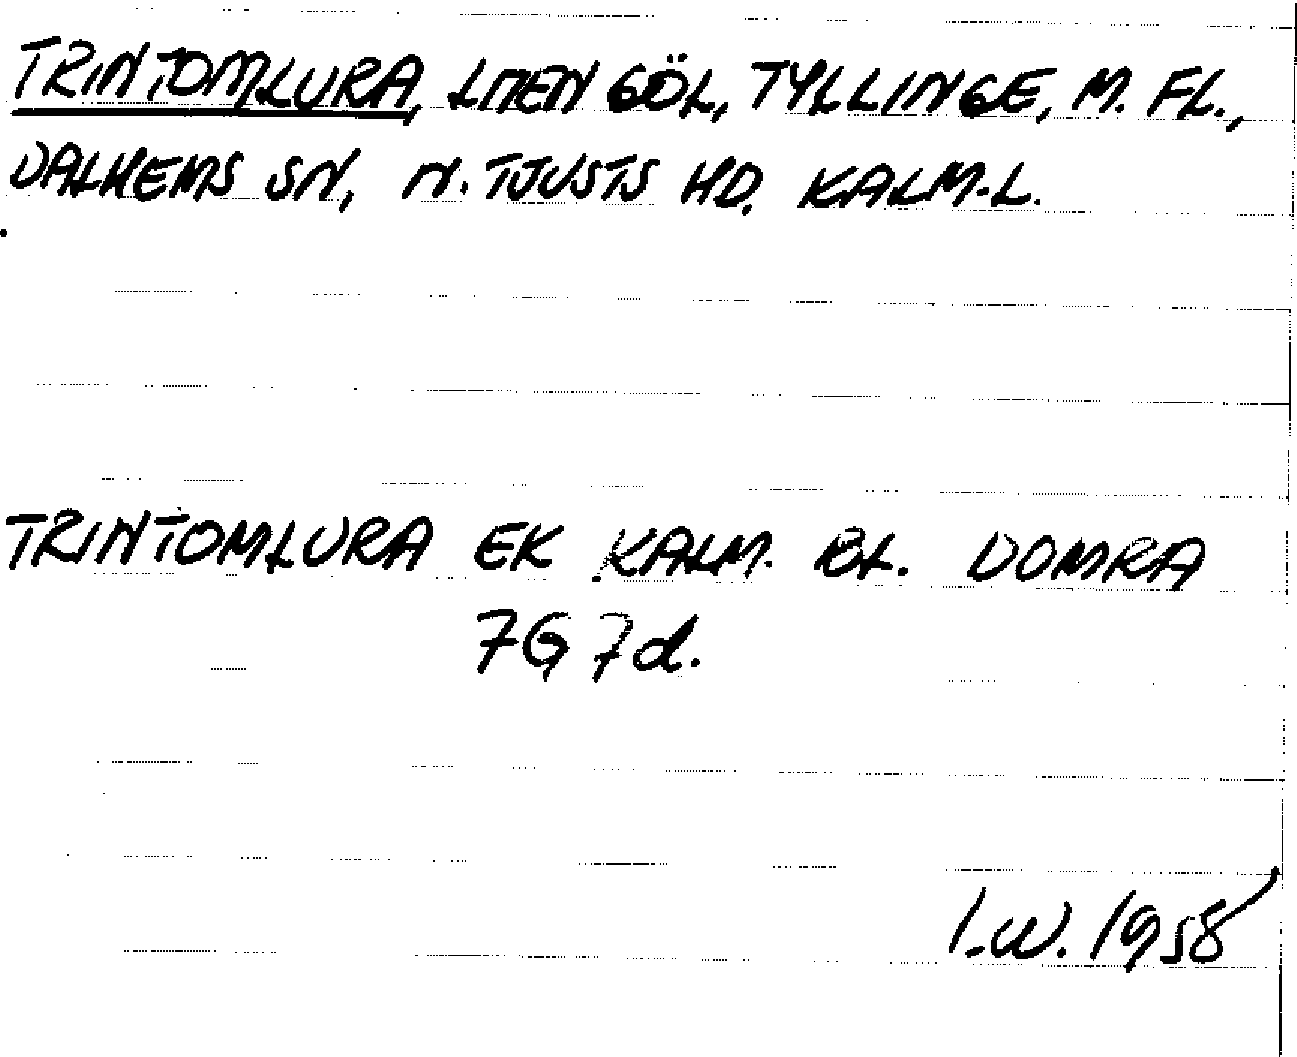 TRINTOMLURA, LITEN GÖL, TYLLINGE, M. FL.,
DALHEMS SN, N. TJUSTS HD. KALM.L.
TRINTOMLURA EK KALM. BL. DOMRA
7G 7d.
I.W. 1958